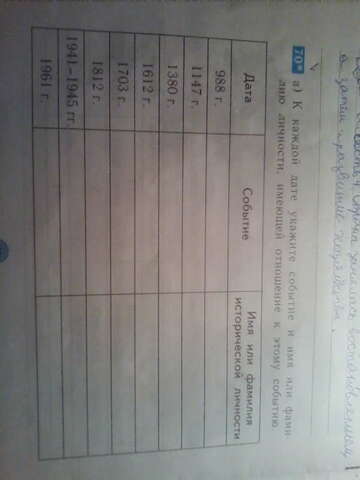 а затем
70* а) К каждой дате укажите событие и имя или фами-
лию личности, имеющей отношение к этому событию
Дата Событие Имя или фамилия исторической личности
988 г.
1147 г.
1380 г.
1612 г.
1703 г.
1812 г.
1941–1945 гг.
1961 г.